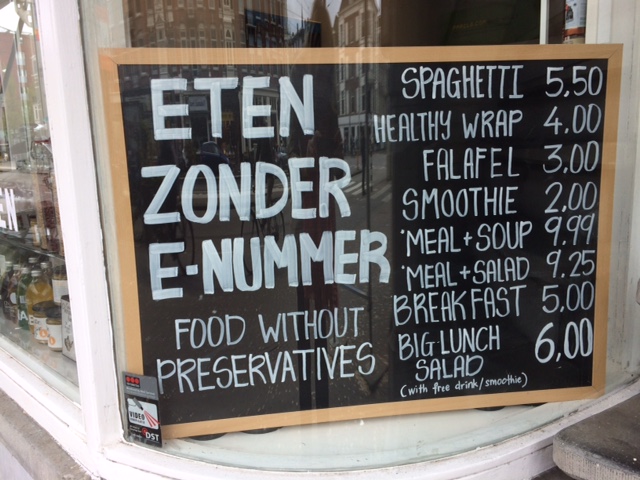 ETEN
ZONDER
E-NUMMER
FOOD WITHOUT
PRESERVATIVES
SPAGHETTI 5,50
HEALTHY WRAP 4.00
FALAFEL 3,00
SMOOTHIE 2,00
*MEAL+SOUP 9,99
*MEAL+SALAD 9.25
BREAKFAST 5,00
BIG-LUNCH 6,00
SALAD
(with free drink/smoothie)
VIDEO
DST